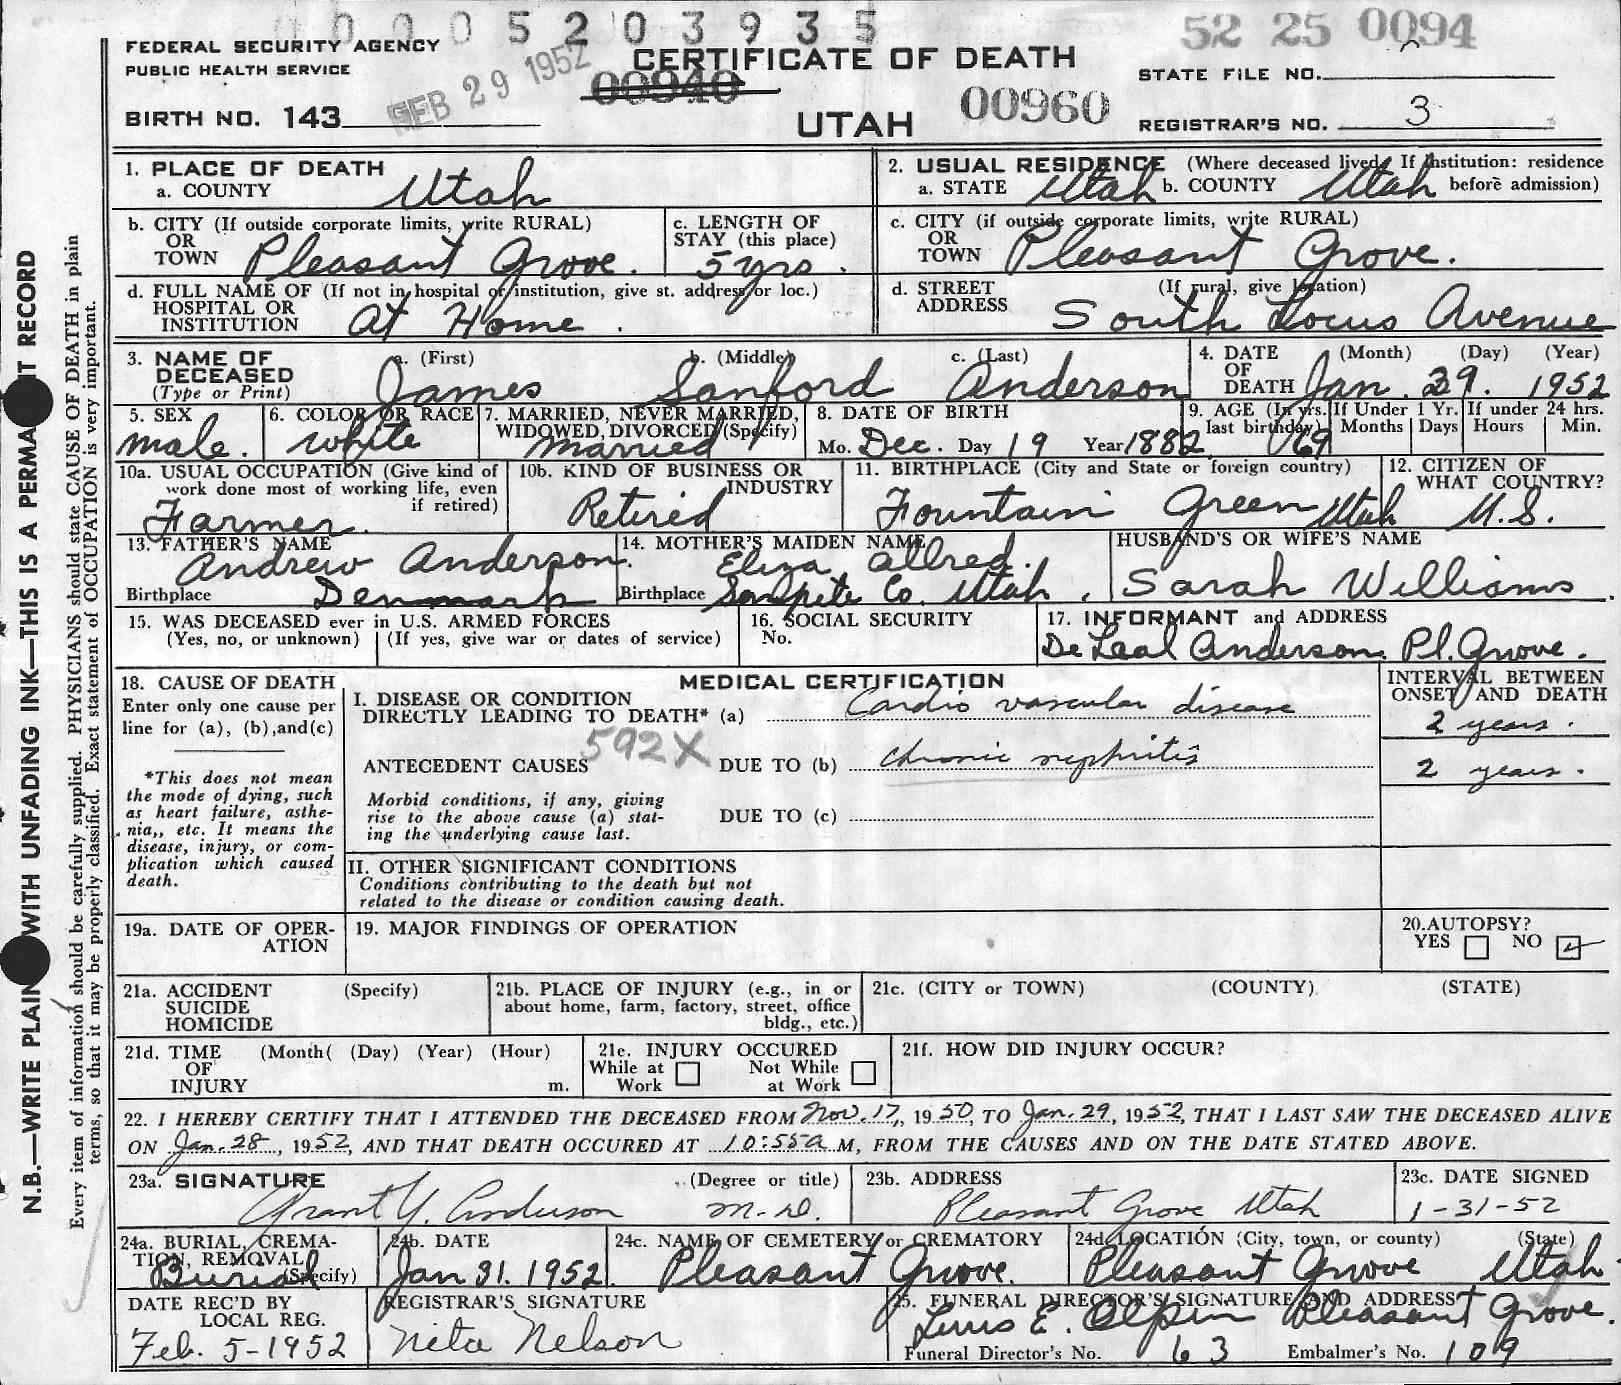 0 0 0 0 5 2 0 3 9 3 5
52 25 0094
FEDERAL SECURITY AGENCY
PUBLIC HEALTH SERVICE
FEB 29 1952
CERTIFICATE OF DEATH
00940
UTAH
00960
STATE FILE NO.
BIRTH NO. 143
REGISTRAR'S NO. 3
1. PLACE OF DEATH
a. COUNTY Utah
2. USUAL RESIDENCE (Where deceased lived. If institution: residence before admission)
a. STATE Utah b. COUNTY Utah
b. CITY (If outside corporate limits, write RURAL)
OR
TOWN Pleasant Grove.
c. LENGTH OF
STAY (this place)
5 yrs.
c. CITY (if outside corporate limits, write RURAL)
OR
TOWN Pleasant Grove.
d. FULL NAME OF (If not in hospital or institution, give st. address or loc.)
HOSPITAL OR
INSTITUTION At Home.
d. STREET (If rural, give location)
ADDRESS South Locus Avenue
3. NAME OF DECEASED
(Type or Print)
a. (First) b. (Middle) c. (Last)
James Sanford Anderson
4. DATE OF DEATH (Month) (Day) (Year)
Jan. 29. 1952
5. SEX
male.
6. COLOR OR RACE
white
7. MARRIED, NEVER MARRIED,
WIDOWED, DIVORCED (Specify)
Married
8. DATE OF BIRTH
Mo. Dec. Day 19 Year 1882
9. AGE (In yrs. last birthday) 69
If Under 1 Yr. Months Days
If under 24 hrs. Hours Min.
10a. USUAL OCCUPATION (Give kind of
work done most of working life, even
if retired)
Farmer.
10b. KIND OF BUSINESS OR
INDUSTRY
Retired
11. BIRTHPLACE (City and State or foreign country)
Fountain Green Utah
12. CITIZEN OF
WHAT COUNTRY?
U.S.
13. FATHER'S NAME
Andrew Anderson.
Birthplace Denmark
14. MOTHER'S MAIDEN NAME
Eliza Allred.
Birthplace Sanpete Co. Utah.
HUSBAND'S OR WIFE'S NAME
Sarah Williams.
15. WAS DECEASED ever in U.S. ARMED FORCES
(Yes, no, or unknown) (If yes, give war or dates of service)
16. SOCIAL SECURITY
No.
17. INFORMANT and ADDRESS
De Leal Anderson. Pl. Grove.
18. CAUSE OF DEATH
Enter only one cause per
line for (a), (b), and (c)
*This does not mean
the mode of dying, such
as heart failure, asthe-
nia,, etc. It means the
disease, injury, or com-
plication which caused
death.
MEDICAL CERTIFICATION
I. DISEASE OR CONDITION
DIRECTLY LEADING TO DEATH* (a) Cardio vascular disease
592X
ANTECEDENT CAUSES DUE TO (b) chronic nephritis
Morbid conditions, if any, giving
rise to the above cause (a) stat-
ing the underlying cause last.
DUE TO (c)
II. OTHER SIGNIFICANT CONDITIONS
Conditions contributing to the death but not
related to the disease or condition causing death.
INTERVAL BETWEEN
ONSET AND DEATH
2 years.
2 years.
19a. DATE OF OPER-
ATION
19. MAJOR FINDINGS OF OPERATION
20. AUTOPSY?
YES NO
21a. ACCIDENT (Specify)
SUICIDE
HOMICIDE
21b. PLACE OF INJURY (e.g., in or
about home, farm, factory, street, office
bldg., etc.)
21c. (CITY or TOWN) (COUNTY) (STATE)
21d. TIME (Month( (Day) (Year) (Hour)
OF
INJURY m.
21e. INJURY OCCURED
While at Work Not While at Work
21f. HOW DID INJURY OCCUR?
22. I HEREBY CERTIFY THAT I ATTENDED THE DECEASED FROM Nov. 17, 1950, TO Jan. 29, 1952, THAT I LAST SAW THE DECEASED ALIVE
ON Jan. 28, 1952, AND THAT DEATH OCCURED AT 10:55a M, FROM THE CAUSES AND ON THE DATE STATED ABOVE.
23a. SIGNATURE (Degree or title)
Grant Y. Anderson M.D.
23b. ADDRESS
Pleasant Grove Utah
23c. DATE SIGNED
1-31-52
24a. BURIAL, CREMA-
TION, REMOVAL
(Specify)
Burial
24b. DATE
Jan 31. 1952.
24c. NAME OF CEMETERY or CREMATORY
Pleasant Grove.
24d. LOCATION (City, town, or county) (State)
Pleasant Grove Utah.
DATE REC'D BY
LOCAL REG.
Feb. 5-1952
REGISTRAR'S SIGNATURE
Nita Nelson
25. FUNERAL DIRECTOR'S SIGNATURE AND ADDRESS
E. Olpin Pleasant Grove.
Funeral Director's No. 63 Embalmer's No. 109
N.B.—WRITE PLAIN WITH UNFADING INK—THIS IS A PERMA T RECORD
Every item of information should be carefully supplied. PHYSICIANS should state CAUSE OF DEATH in plain
terms, so that it may be properly classified. Exact statement of OCCUPATION is very important.